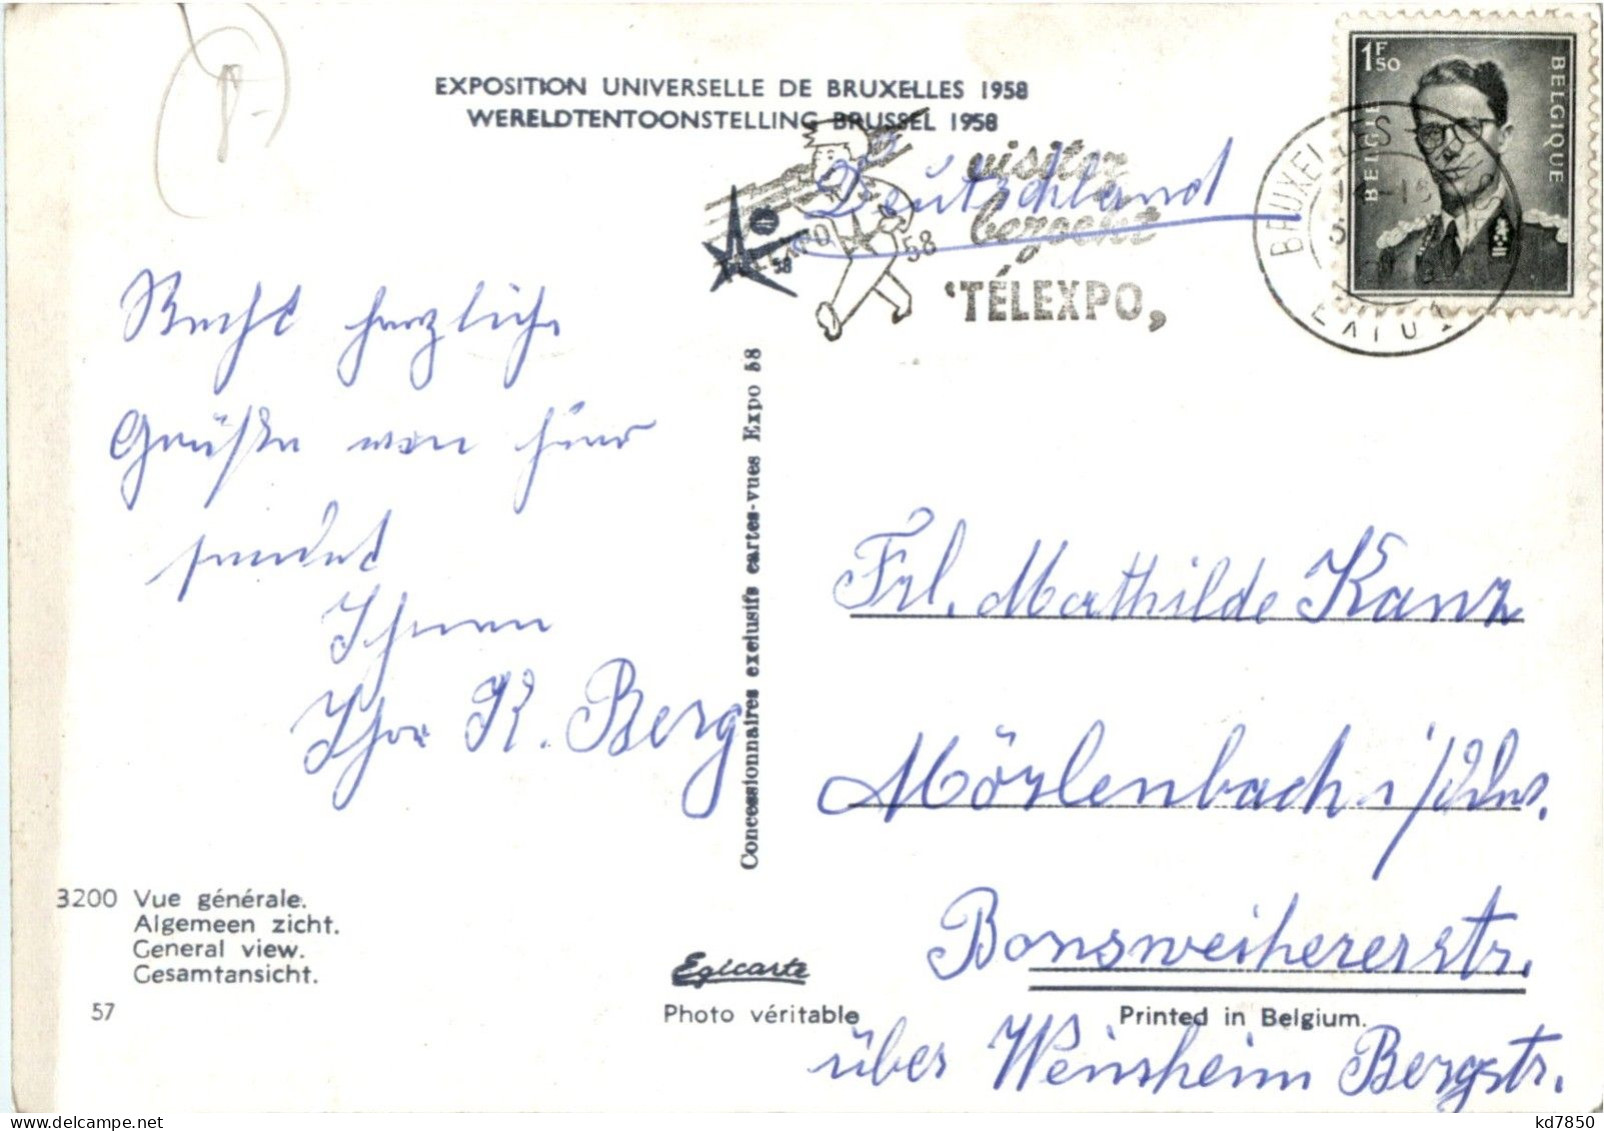 EXPOSITION UNIVERSELLE DE BRUXELLES 1958
WERELDTENTOONSTELLING BRUSSEL 1958
1F50
BELGIE
BELGIQUE
BRUXELLES
visiter
bezoekt
'TÉLEXPO,
58
58
Deutschland
Recht herzliche
Grüße von hier
sendet
Ihnen
Ihr K. Berg
Concessionnaires exclusifs cartes-vues Expo 58
Frl. Mathilde Kanz
Mörlenbach i/Odw.
Bonsweihererstr.
über Weinheim Bergstr.
3200 Vue générale.
Algemeen zicht.
General view.
Gesamtansicht.
57
Egicarte
Photo véritable
Printed in Belgium.
kd7850